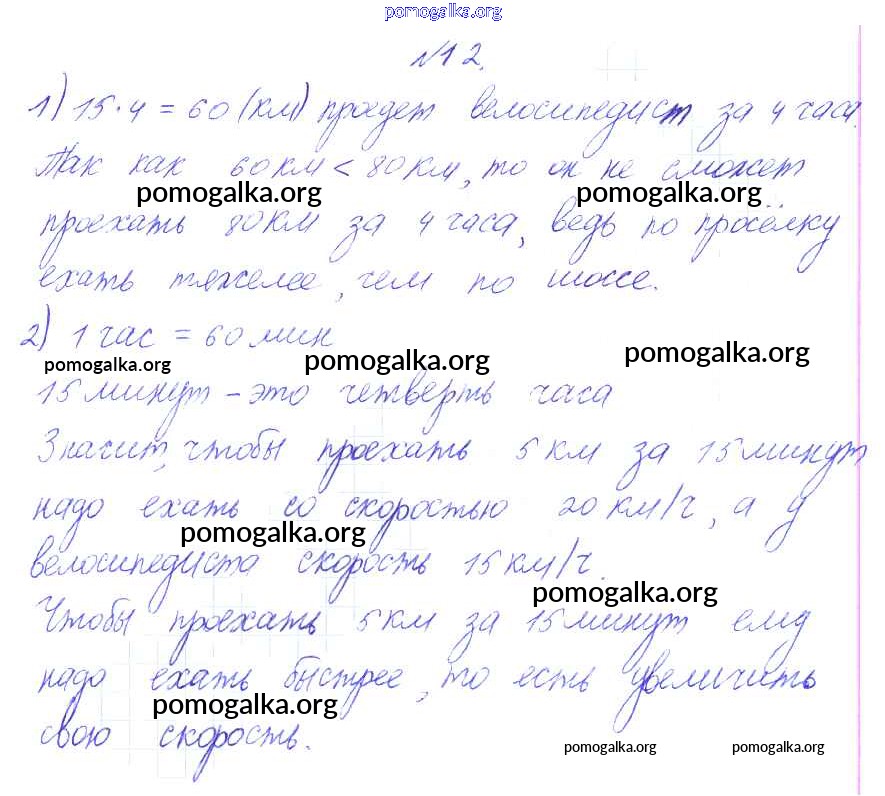 pomogalka.org
№12.
1) 15·4 = 60 (км) проедет велосипедист за 4 часа.
Так как 60 км < 80 км, то он не сможет
pomogalka.org pomogalka.org
проехать 80 км за 4 часа, ведь по просёлку
ехать тяжелее, чем по шоссе.
2) 1 час = 60 мин
pomogalka.org pomogalka.org pomogalka.org
15 минут – это четверть часа
Значит, чтобы проехать 5 км за 15 минут
надо ехать со скоростью 20 км/ч, а у
pomogalka.org
велосипедиста скорость 15 км/ч.
pomogalka.org
Чтобы проехать 5 км за 15 минут ему
надо ехать быстрее, то есть увеличить
pomogalka.org
свою скорость.
pomogalka.org pomogalka.org